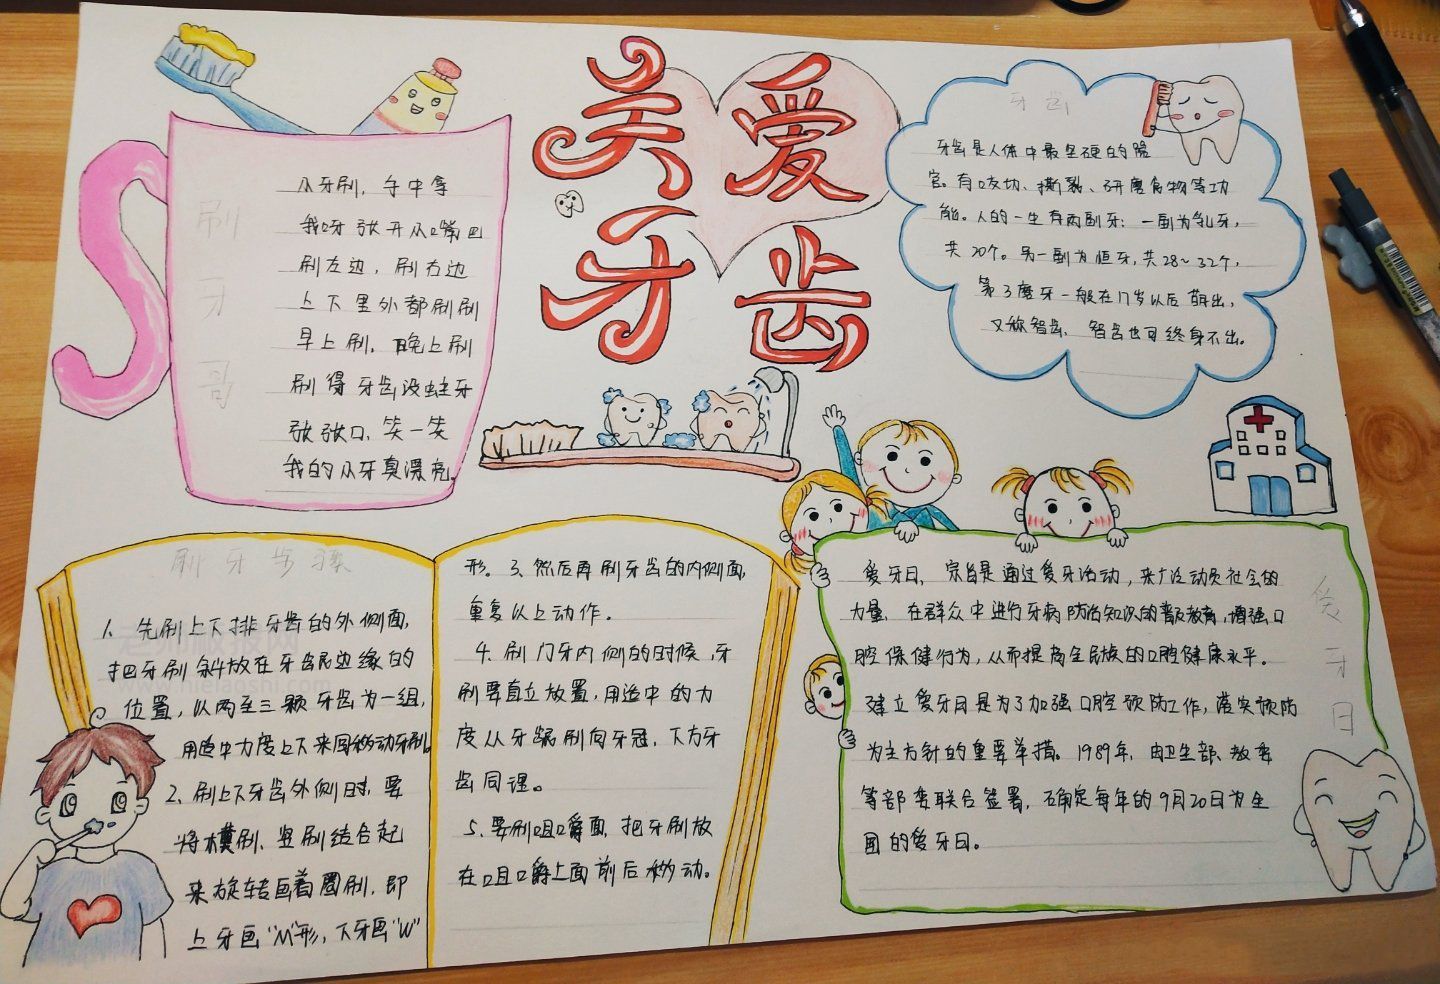 关爱
牙齿
刷
牙
哥
小牙刷,手中拿
我呀张开小嘴巴
刷左边,刷右边
上下里外都刷刷
早上刷,晚上刷
刷得牙齿没蛀牙
张张口,笑一笑
我的小牙真漂亮。
牙齿
牙齿是人体中最坚硬的器
官。有咬切、撕裂、研磨食物等功
能。人的一生有两副牙:一副为乳牙,
共20个。另一副为恒牙,共28~32个,
第3磨牙一般在17岁以后萌出,
又称智齿,智齿也可终身不出。
刷牙步骤
1、先刷上下排牙齿的外侧面,
把牙刷斜放在牙龈边缘的
位置,以两至三颗牙齿为一组,
用适中力度上下来回移动牙刷。
2、刷上下牙齿外侧时,要
将横刷、竖刷结合起
来旋转画着圈刷,即
上牙画"M"形,下牙画"W"
形。3、然后再刷牙齿的内侧面,
重复以上动作。
4、刷门牙内侧的时候,牙
刷要直立放置,用适中的力
度从牙龈刷向牙冠,下方牙
齿同理。
5、要刷咀嚼面,把牙刷放
在咀嚼上面前后移动。
爱
牙
日
爱牙日,宗旨是通过爱牙活动,来广泛动员社会的
力量,在群众中进行牙病防治知识的普及教育,增强口
腔保健行为,从而提高全民族的口腔健康水平。
建立爱牙日是为了加强口腔预防工作,落实预防
为主方针的重要举措。1989年,由卫生部、教委
等部委联合签署,确定每年的9月20日为全
国的爱牙日。